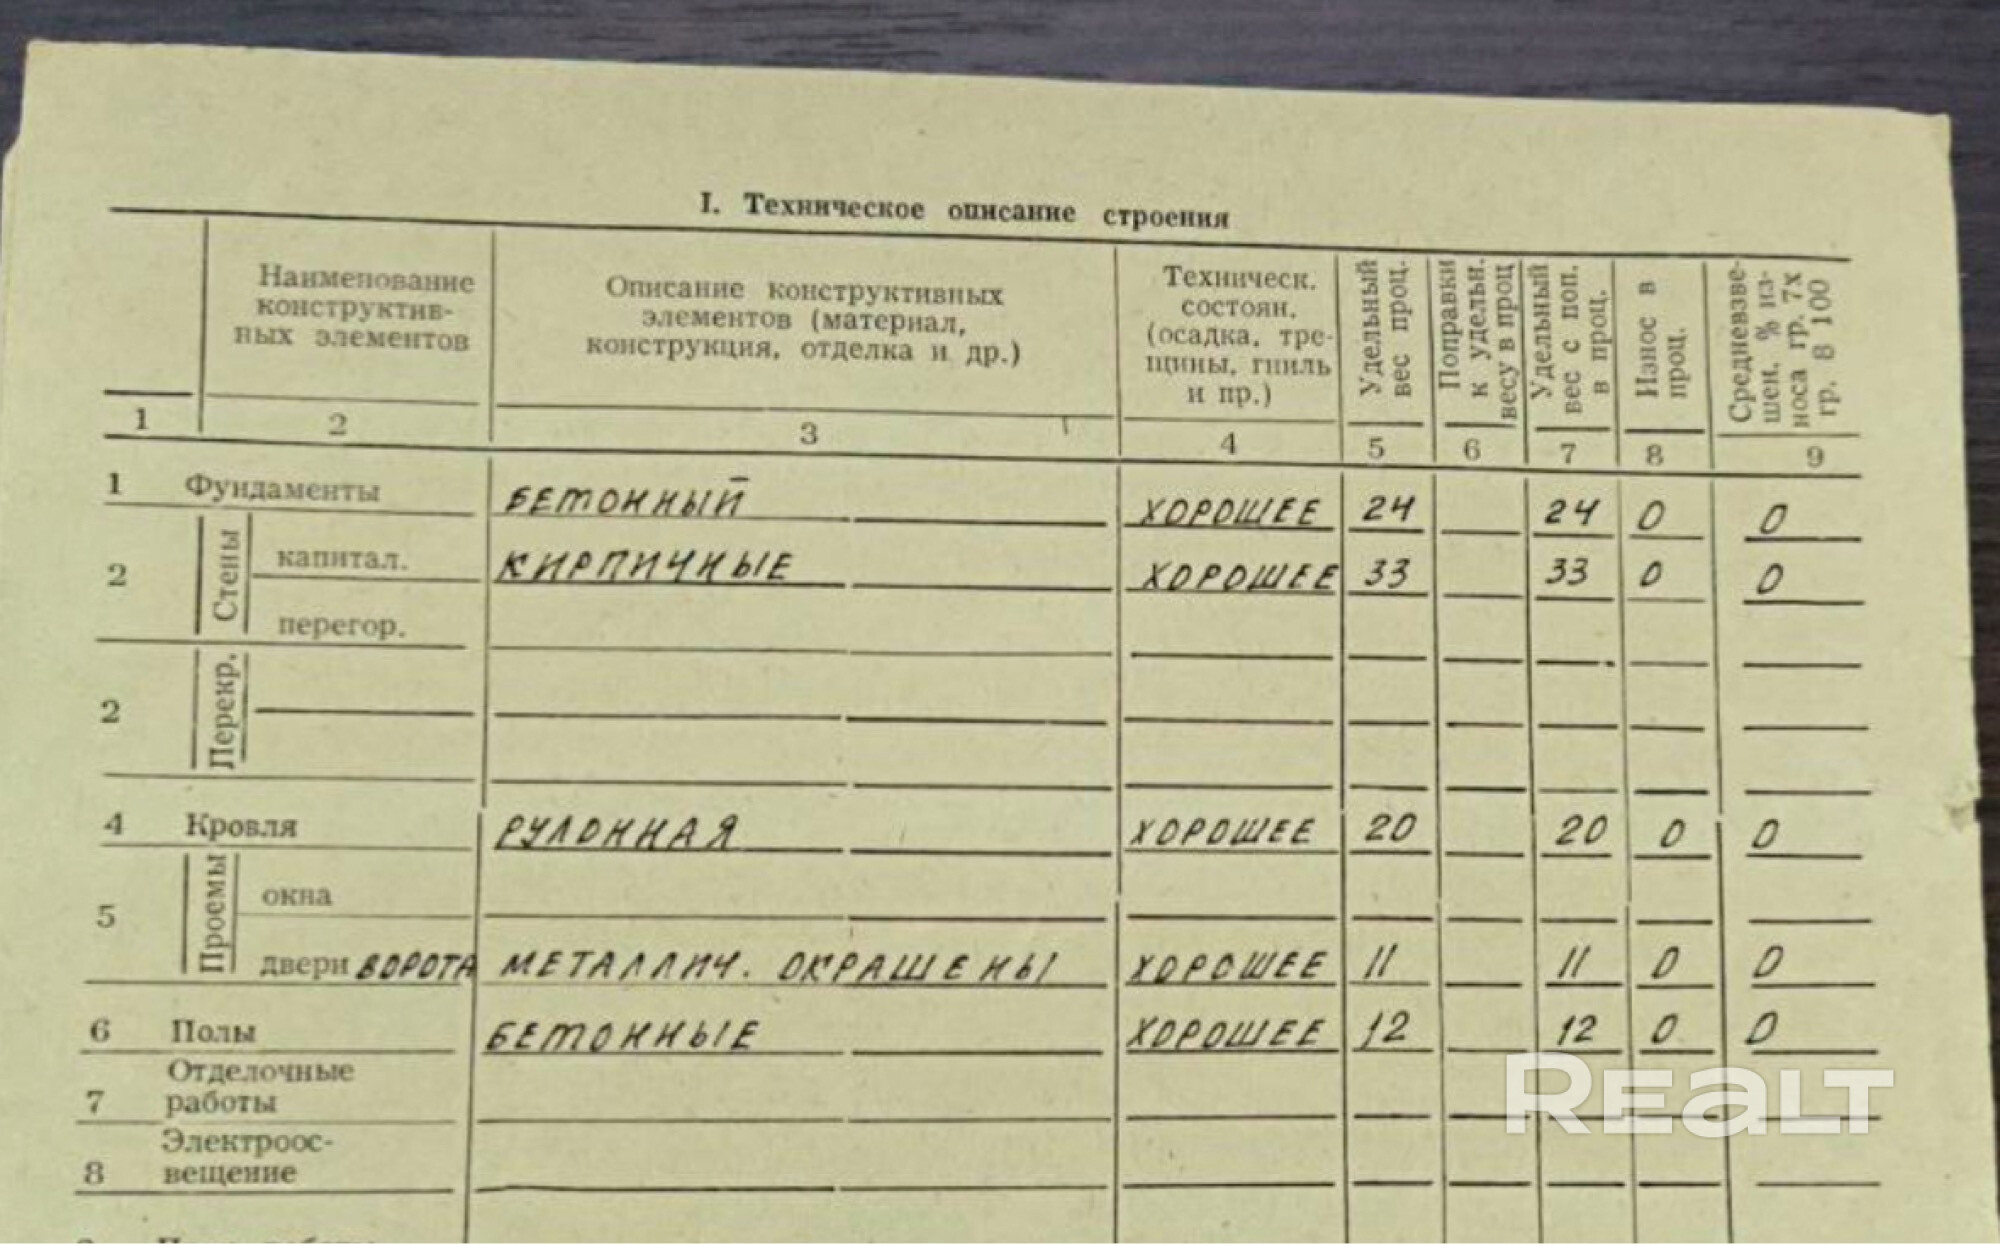 I. Техническое описание строения
Наименование
конструктив-
ных элементов
Описание конструктивных
элементов (материал,
конструкция, отделка и др.)
Техническ.
состоян.
(осадка, тре-
щины, гниль
и пр.)
Удельный
вес проц.
Поправки
к удельн.
весу в проц
Удельный
вес с поп.
в проц.
Износ в
проц.
Средневзве-
шен. % из-
носа гр. 7х
гр. 8 100
1 2 3 4 5 6 7 8 9
1 Фундаменты БЕТОННЫЙ ХОРОШЕЕ 24 24 0 0
2 Стены капитал. КИРПИЧНЫЕ ХОРОШЕЕ 33 33 0 0
перегор.
2 Перекр.
4 Кровля РУЛОННАЯ ХОРОШЕЕ 20 20 0 0
5 Проемы окна
двери ВОРОТА МЕТАЛЛИЧ. ОКРАШЕНЫ ХОРОШЕЕ 11 11 0 0
6 Полы БЕТОННЫЕ ХОРОШЕЕ 12 12 0 0
Отделочные
7 работы
Электроос-
8 вещение
REALT